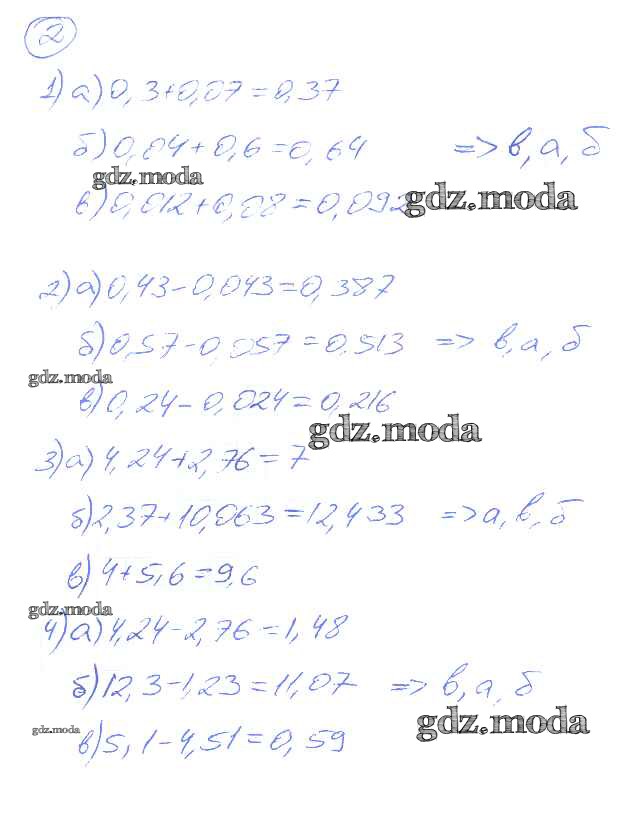 2
1) а) 0,3+0,07=0,37
б) 0,04+0,6=0,64 => в, а, б
gdz.moda
в) 0,012+0,08=0,092 gdz.moda
2) а) 0,43-0,043=0,387
б) 0,57-0,057=0,513 => в, а, б
gdz.moda
в) 0,24-0,024=0,216
gdz.moda
3) а) 4,24+2,76=7
б) 2,37+10,063=12,433 => а, в, б
в) 4+5,6=9,6
gdz.moda
4) а) 4,24-2,76=1,48
б) 12,3-1,23=11,07 => в, а, б
gdz.moda
gdz.moda в) 5,1-4,51=0,59